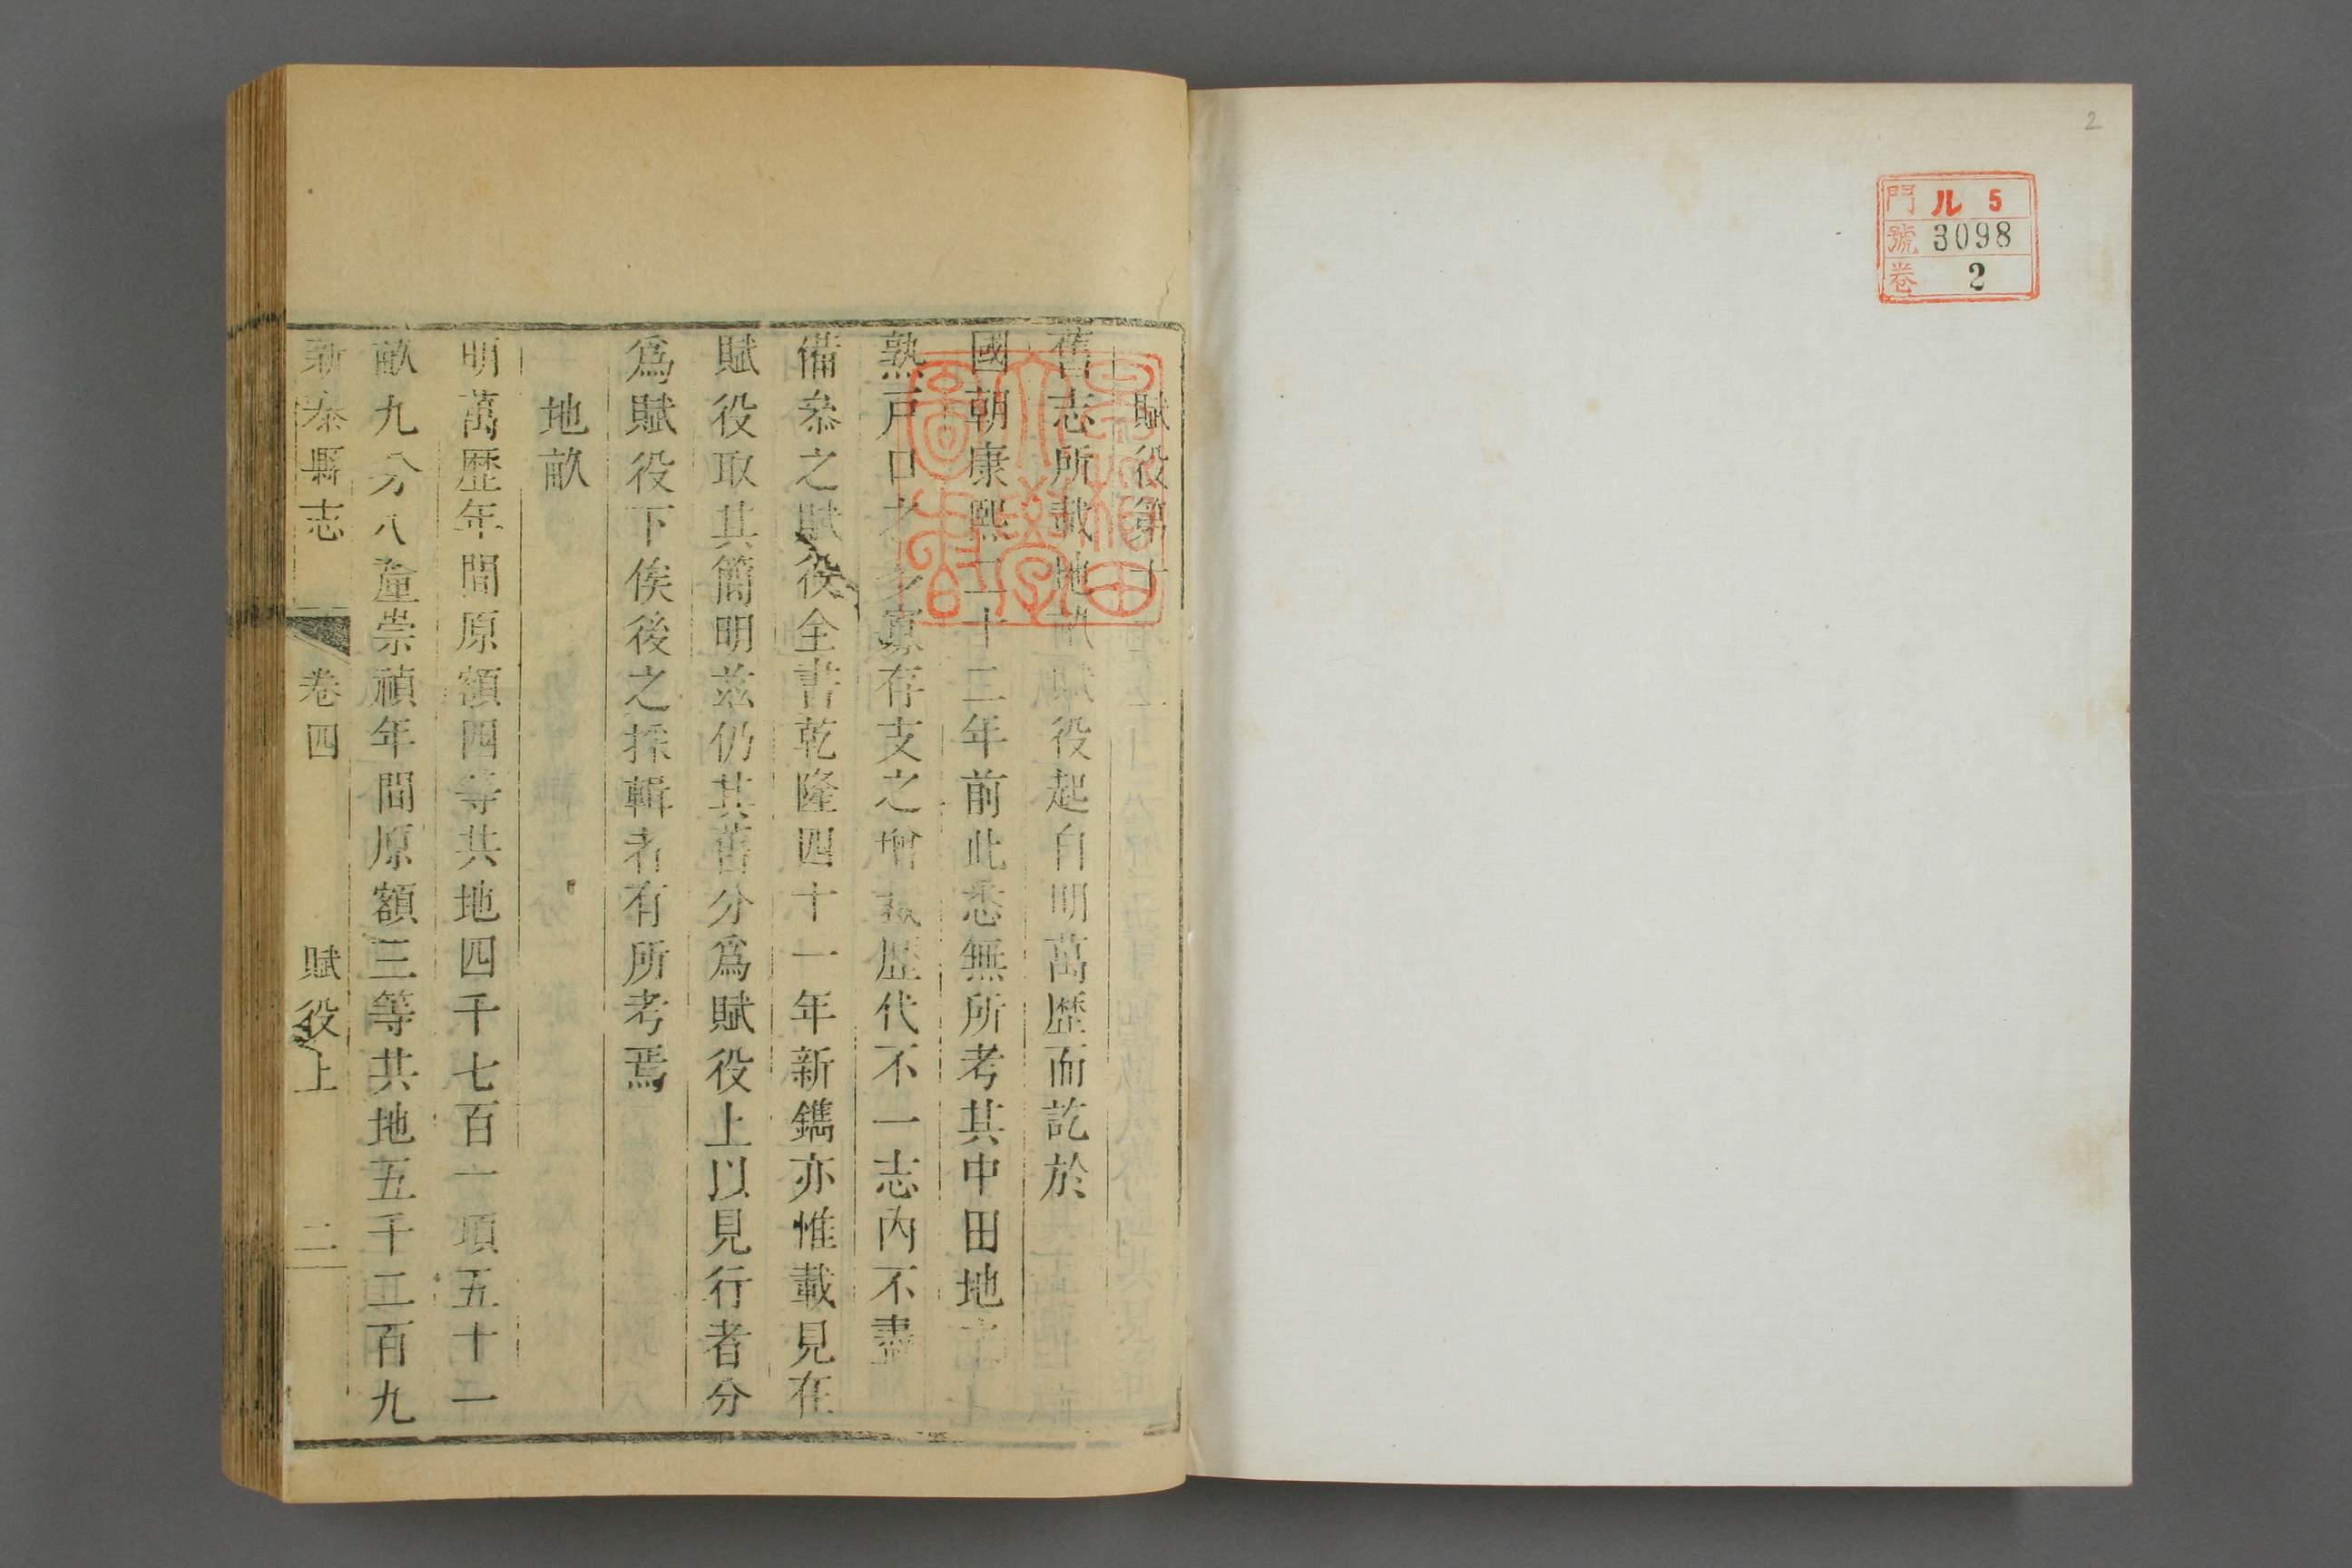 2
門 ル 5
號 3098
卷 2
早稲田大學圖書
賦役第十
舊志所載地畝賦役起自明萬歷而訖於
國朝康熙二十二年前此悉無所考其中田地
熟戶口之多寡存支之增減歷代不一志内不盡
備叅之賦役全書乾隆四十一年新鐫亦惟載見在
賦役取其簡明兹仍其舊分爲賦役上以見行者分
爲賦役下俟後之採輯者有所考焉
地畝
明萬歷年間原額四等共地四千七百一項五十一
畝九分八釐崇禎年間原額三等共地五千二百九
新泰縣志 卷四 賦役上 二